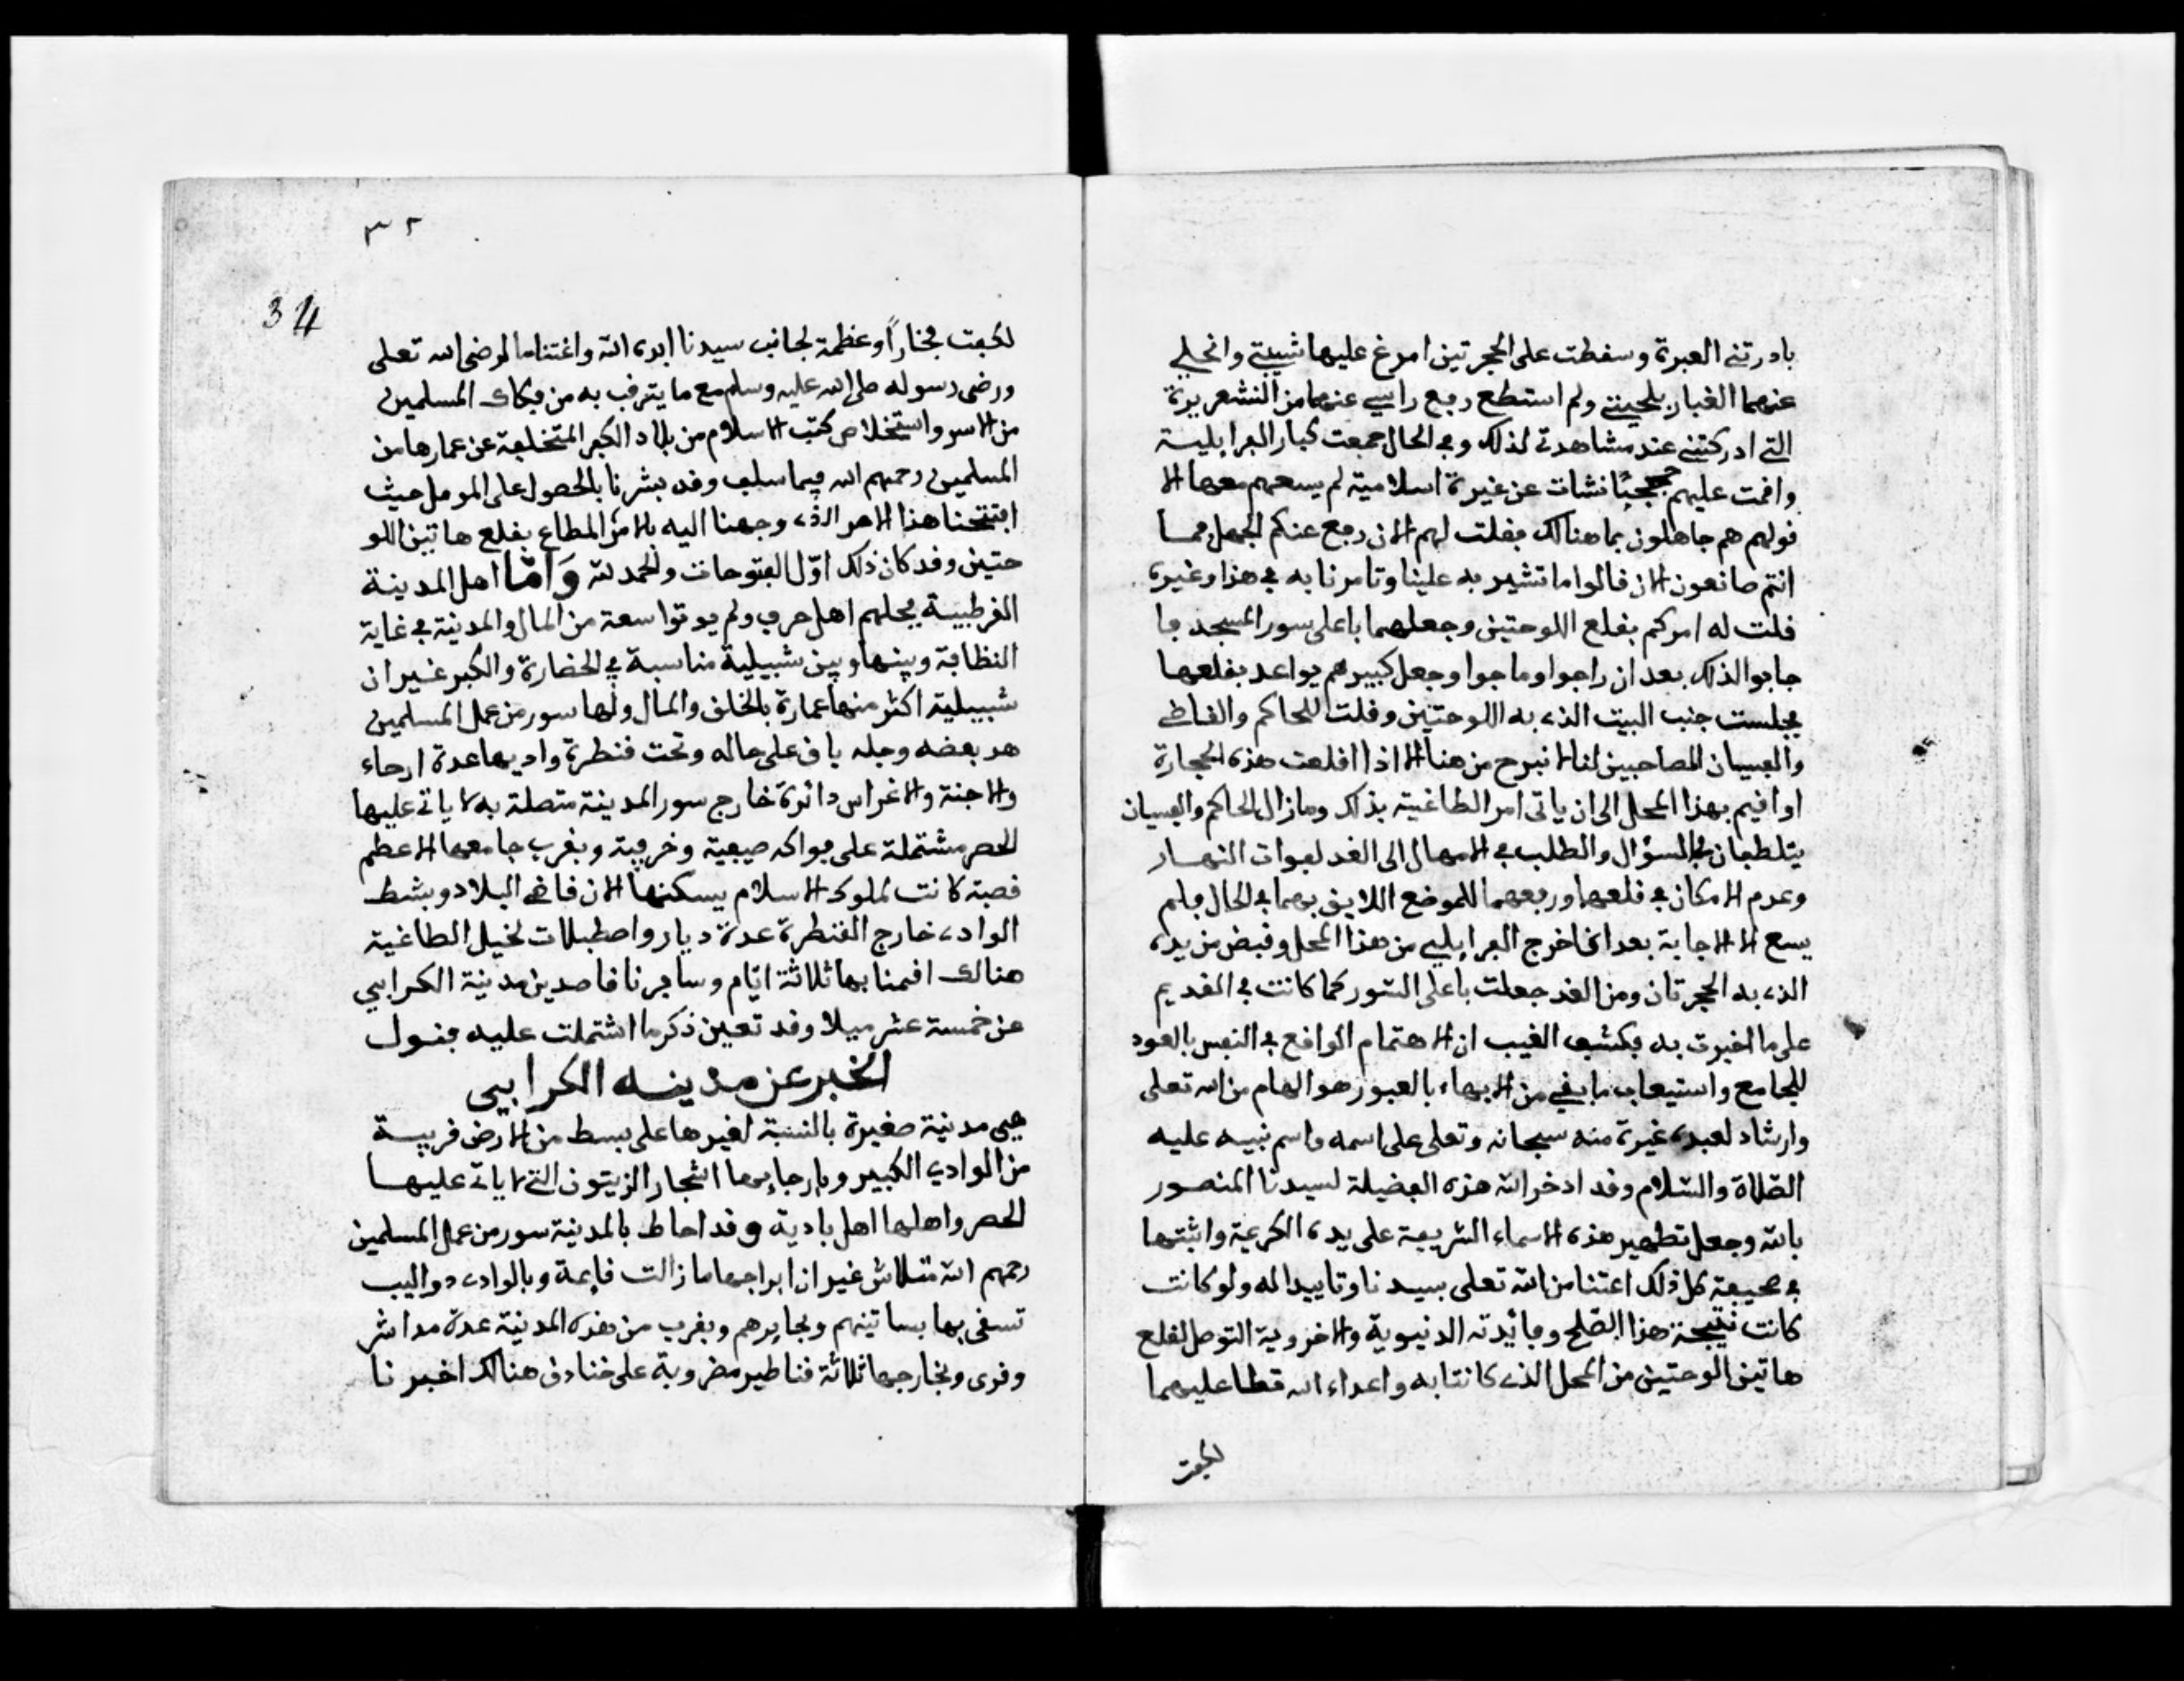 بادرتني العبرة وسفطت على الحجرتين امرغ عليها شيبتي وانجلي
عنهما الغبار بلحيتي ولم استطع رفع راسي عنهما من القشعريرة
التي ادركتني عند مشاهدتي لذلك وفي الحال جمعت كبار الفرايلية
وافمت عليهم حججًا نشات عن غيرة اسلامية لم يسعهم معها الا
فولهم هم جاهلون بما هنالك ففلت لهم الان رفع عنكم الجهل فما
انتم صانعون الان فالوا ما تشير به علينا وتامرنا به في هذا وغيره
فلت له امركم بفلع اللوحتين وجعلهما باعلى سور المسجد فا
جابوا لذلك بعد ان راجوا وماجوا وجعل كبيرهم يواعد بفلعها
فجلست جنب البيت الذي به اللوحتين وفلت للحاكم والفاظي
والفسيان المصاحبين لنا لا نبرح من هنا الا اذا افلعت هذه الحجارة
او افيم بهذا المحل الى ان ياتي امر الطاغية بذلك ومازال الحاكم والفسيان
يتلطفان في السؤال والطلب في الامهال الى الغد لفوات النهار
وعدم الامكان في فلعها ورفعهما للموضع اللايق بهما في الحال فلم
يسع الا الاجابة بعد اخراج الفرايلي من هذا المحل وفبض من يده
الذي به الحجرتان ومن الغد جعلت باعلى السور كما كانت في الفديم
على ما اخبرت به فكشف الغيب ان الاهتمام الوافع في النفس بالعود
للجامع واستيعاب ما بفي من الابهاء بالعبور هو الهام من الله تعلى
وارشاد لعبده غيرة منه سبحانه وتعلى على اسمه واسم نبيه عليه
الصّلاة والسّلام وفد ادخر الله هذه الفضيلة لسيدنا المنصور
بالله وجعل تطهير هذه الاسماء الشريفة على يده الكريمة واثبتها
في صحيفة كل ذلك اعتنا من الله تعلى بسيدنا وتاييدا له ولو كانت
كانت نتيجة هذا الصّلح وفائدته الدنيوية والاخروية التوصل لفلع
هاتين الوحتين من المحل الذي كانتا به واعداء الله فطا عليهما
لكفت
٣٢
34
لكفت فخاراً وعظمة لجانب سيدنا ايده الله واغتناما لرضى الله تعلى
ورضى رسوله صلى الله عليه وسلم مع ما يترفب به من فكاك المسلمين
من الاسر واستخلاص كتب الاسلام من بلاد الكفر المتخلفة عن عمارها من
المسلمين رحمهم الله فيما سلف وفد بشرنا بالحصول على المومل حيث
افتتحنا هذا الامر الذي وجهنا اليه بالامر المطاع بفلع هاتين اللو
حتين وفد كان ذلك اوّل الفتوحات والحمد لله وَامّا اهل المدينة
الفرطبية فجلهم اهل حرف ولم يوتوا سعة من المال والمدينة في غاية
النظافة وبينها وبين شبيلية مناسبة في الحضارة والكبر غير ان
شبيلية اكثر منها عمارة بالخلف والمال ولها سور من عمل المسلمين
هد بعضه وجله باف على حاله وتحت فنطرة واديها عدة ارحاء
والاجنة والاغراس دائرة خارج سور المدينة متصلة به لا ياتي عليها
الحصر مشتملة على فواكه صيفية وخريفية وبفرب جامعها الاعظم
فصبة كانت لملوك الاسلام يسكنها الان فاضي البلاد وبشط
الوادي خارج الفنطرة عدة ديار واصطبلات لخيل الطاغية
هنالك افمنا بها ثلاثة ايّام وسافرنا فاصدين مدينة الكرابي
عن خمسة عشر ميلا وفد تعين ذكر ما اشتملت عليه فنفول
الخبر عن مدينه الكرابي
هي مدينة صغيرة بالنسبة لغيرها على بسط من الارض فريبة
من الوادي الكبير وبارجايها اشجار الزيتون التي لا ياتي عليها
الحصر واهلها اهل بادية وفد احاط بالمدينة سور من عمل المسلمين
رحمهم الله متلاش غير ان ابراجها مازالت فايمة وبالوادي دواليب
تسفى بها بساتينهم وبحايرهم وبفرب من هذه المدينة عدة مداشر
وفرى وبخارجها ثلاثة فناطير مضروبة على خنادف هنالك اخبرنا